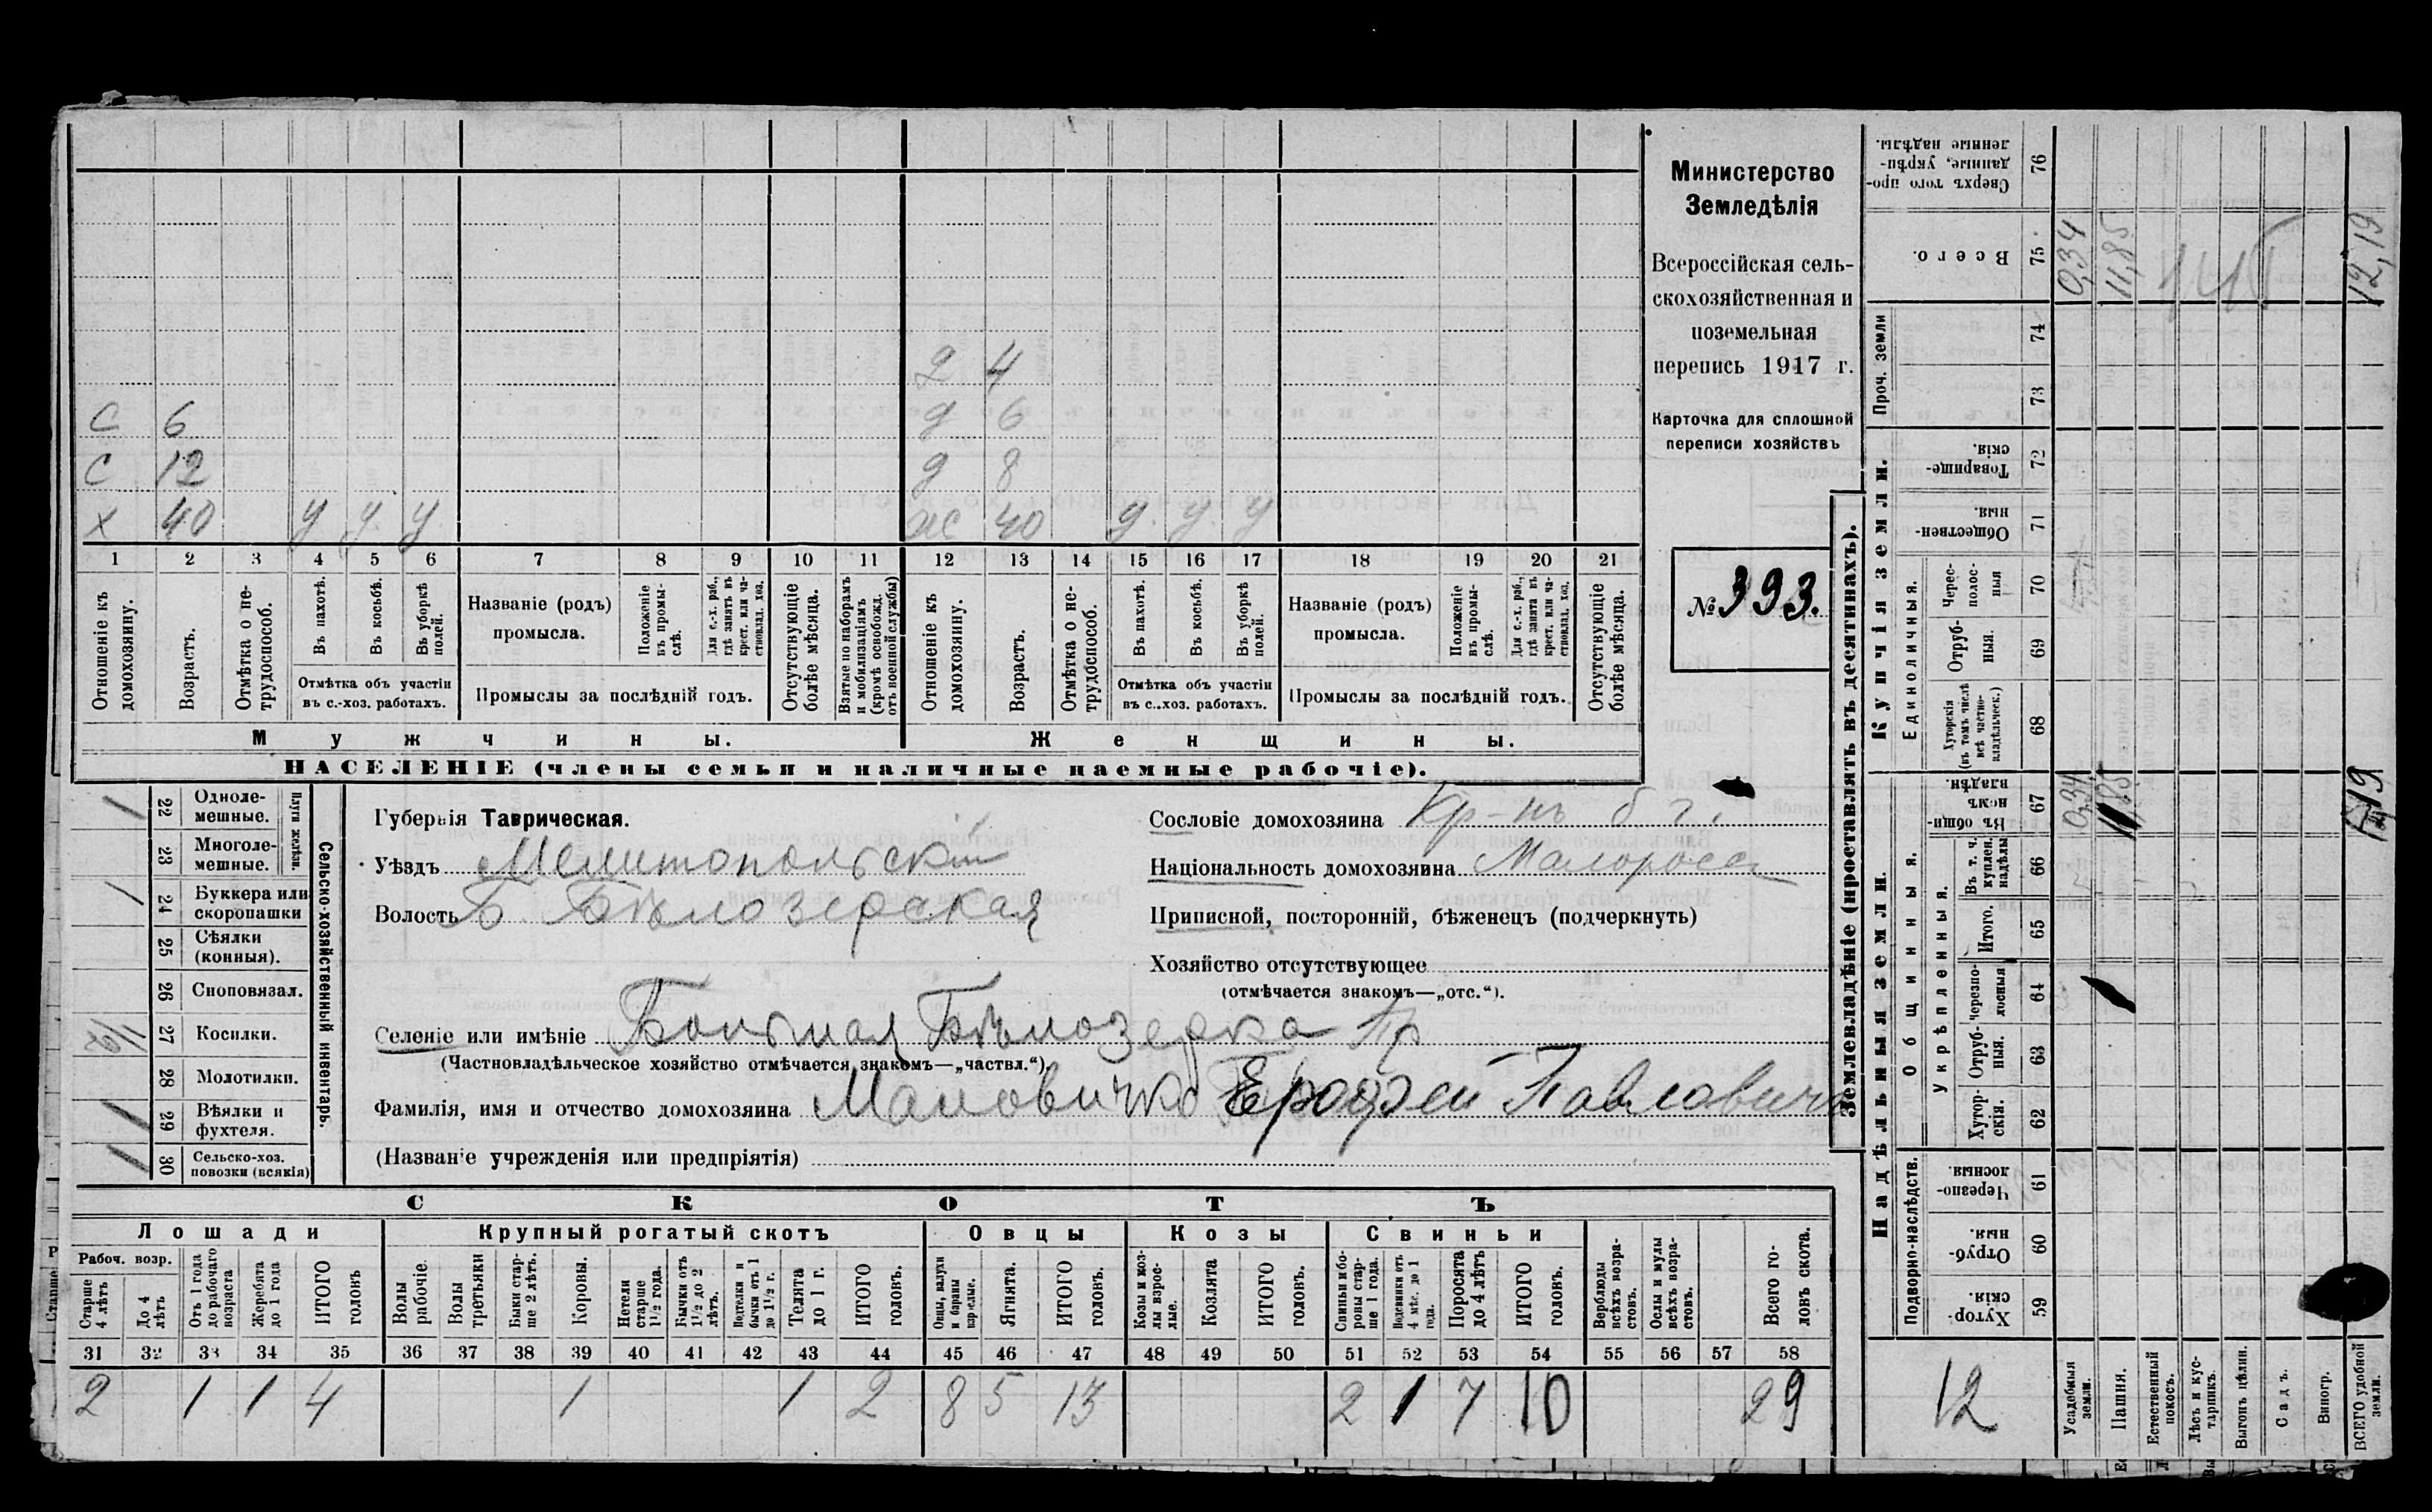 Министерство
Земледѣлія
Всероссійская сель-
скохозяйственная и
поземельная
перепись 1917 г.
Карточка для сплошной
переписи хозяйствъ
№ 393.
2 4
С 6
д 6
С 12
д 8
х 40 у у у
ж 40 у. у. у
1 2 3 4 5 6 7 8 9 10 11 12 13 14 15 16 17 18 19 20 21
Отношеніе къ домохозяину.
Возрастъ.
Отмѣтка о не-трудоспособ.
Въ пахотѣ.
Въ косьбѣ.
Въ уборкѣ полей.
Отмѣтка объ участіи
въ с.-хоз. работахъ.
Названіе (родъ)
промысла.
Положеніе въ промы-слѣ.
Для с.-х. раб., гдѣ занятъ въ крест. или ча-стновлад. хоз.
Промыслы за послѣдній годъ.
Отсутствующіе болѣе мѣсяца.
Взятые по наборамъ и мобилизаціямъ (кромѣ освобожд. отъ военной службы)
Отношеніе къ домохозяину.
Возрастъ.
Отмѣтка о не-трудоспособ.
Въ пахотѣ.
Въ косьбѣ.
Въ уборкѣ полей.
Отмѣтка объ участіи
въ с.-хоз. работахъ.
Названіе (родъ)
промысла.
Положеніе въ промы-слѣ.
Для с.-х. раб., гдѣ занятъ въ крест. или ча-стновлад. хоз.
Промыслы за послѣдній годъ.
Отсутствующіе болѣе мѣсяца.
Мужчины.
Женщины.
НАСЕЛЕНІЕ (члены семьи и наличные наемные рабочіе).
Сельско-хозяйственный инвентарь.
Плуги желѣзн.
1 22 Одноле-мешные.
23 Многоле-мешные.
1 24 Буккера или скоропашки
25 Сѣялки (конныя).
26 Сноповязал.
27 Косилки.
28 Молотилки.
1 29 Вѣялки и фухтеля.
30 Сельско-хоз. повозки (всякія)
Губернія Таврическая.
Уѣздъ Мелитопольскій
Волость Б Бѣлозерская
Селеніе или имѣніе Большая Бѣлозерка Пр
(Частновладѣльческое хозяйство отмѣчается знакомъ—„частвл.“)
Фамилія, имя и отчество домохозяина Мановичко Ерофей Павлович
(Названіе учрежденія или предпріятія)
Сословіе домохозяина Кр-нъ б г.
Національность домохозяина Малоросс
Приписной, посторонній, бѣженецъ (подчеркнуть)
Хозяйство отсутствующее
(отмѣчается знакомъ—„отс.“).
СКОТЪ
Лошади
Крупный рогатый скотъ
Овцы
Козы
Свиньи
Рабоч. возр.
Старше 4 лѣтъ
До 4 лѣтъ
Отъ 1 года до рабочаго возраста
Жеребята до 1 года
ИТОГО головъ
Волы рабочіе.
Волы третьяки
Быки стар-ше 2 лѣтъ.
Коровы.
Нетели старше 1½ года.
Бычки отъ 1½ до 2 лѣтъ.
Нетелки и бычки отъ 1 до 1½ г.
Телята до 1 г.
ИТОГО головъ.
Овцы, валухи и бараны взрослые.
Ягнята.
ИТОГО головъ.
Козы и коз-лы взрос-лые.
Козлята
ИТОГО головъ.
Свиньи и бо-ровы стар-ше 1 года.
Подсвинки отъ 4 мѣс. до 1 года.
Поросята до 4 лѣтъ
ИТОГО головъ.
Верблюды всѣхъ возра-стовъ.
Ослы и мулы всѣхъ возра-стовъ.
Всего го-ловъ скота.
31 32 33 34 35 36 37 38 39 40 41 42 43 44 45 46 47 48 49 50 51 52 53 54 55 56 57 58
2 1 1 4 1 1 2 8 5 13 2 1 7 10 29
Землевладѣніе (проставлять въ десятинахъ).
Сверхъ того про-данные, укрѣп-ленные надѣлы. 76
Всего. 75 0,34 11,85 12,19
Проч. земли 74 73
Купчія земли.
Товарище-скія. 72
Обществен-ныя. 71
Единоличныя.
Черес-полос-ныя 70
Отруб-ныя. 69
Хуторскія (въ томъ числѣ всѣ частно-владѣльческ.) 68
Надѣльныя земли.
Общинныя.
Въ общин-номъ владѣн. 67 0,34
Укрѣпленныя.
Въ т. ч. куплен. надѣлы 66
Итого. 65
Черезпо-лосныя 64
Отруб-ныя. 63
Хутор-скія. 62
Подворно-наслѣдств.
Черезпо-лосныя. 61
Отруб-ныя. 60
Хутор-скія. 59
12
Усадебныя земли.
Пашня.
Естественный покосъ.
Лѣсъ и кус-тарникъ.
Выгонъ цѣлин.
Садъ.
Виногр.
ВСЕГО удобной земли.